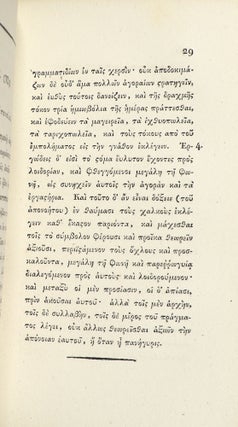 29
γραμματιδίων ἐν ταῖς χερσίν· οὐκ ἀποδοκιμά-
ζων δὲ οὐδ' ἅμα πολλῶν ἀγοραίων στρατηγεῖν,
καὶ εὐθὺς τούτοις δανείζειν, καὶ τῆς δραχμῆς
τόκον τρία ἡμιωβόλια τῆς ἡμέρας πράττεσθαι,
καὶ ἐφοδεύειν τὰ μαγειρεῖα, τὰ ἰχθυοπώλια,
τὰ ταριχοπώλια, καὶ τοὺς τόκους ἀπὸ τοῦ
ἐμπολήματος εἰς τὴν γνάθον ἐκλέγειν. Ἐρ- 4.
γώδεις δ' εἰσὶ τὸ στόμα εὔλυτον ἔχοντες πρὸς
λοιδορίαν, καὶ φθεγγόμενοι μεγάλῃ τῇ φω-
νῇ, ὡς συνηχεῖν αὐτοῖς τὴν ἀγορὰν καὶ τὰ
ἐργαστήρια. Καὶ τοῦτο δ' ἂν εἶναι δόξειε (τοῦ
ἀπονοήτου) ἐν θαύμασι τοὺς χαλκοὺς ἐκλέ-
γειν καθ' ἕκαστον παριόντα, καὶ μάχεσθαι
τοῖς τὸ σύμβολον φέρουσι καὶ προῖκα θεωρεῖν
ἀξιοῦσι. περιϊσταμένου τοὺς ὄχλους καὶ προσ-
καλοῦντα, μεγάλῃ τῇ φωνῇ καὶ παρεῤῥωγυίᾳ
διαλεγόμενον πρὸς αὐτοὺς καὶ λοιδορούμενον·
καὶ μεταξὺ οἱ μὲν προσίασιν, οἱ δ' ἀπίασι,
πρὶν ἀκοῦσαι αὐτοῦ· ἀλλὰ τοῖς μὲν ἀρχὴν,
τοῖς δὲ συλλαβὴν, τοῖς δὲ μέρος τοῦ πράγμα-
τος λέγει, οὐκ ἄλλως θεωρεῖσθαι ἀξιῶν τὴν
ἀπόνοιαν ἑαυτοῦ, ἢ ὅταν ἢ πανήγυρις.